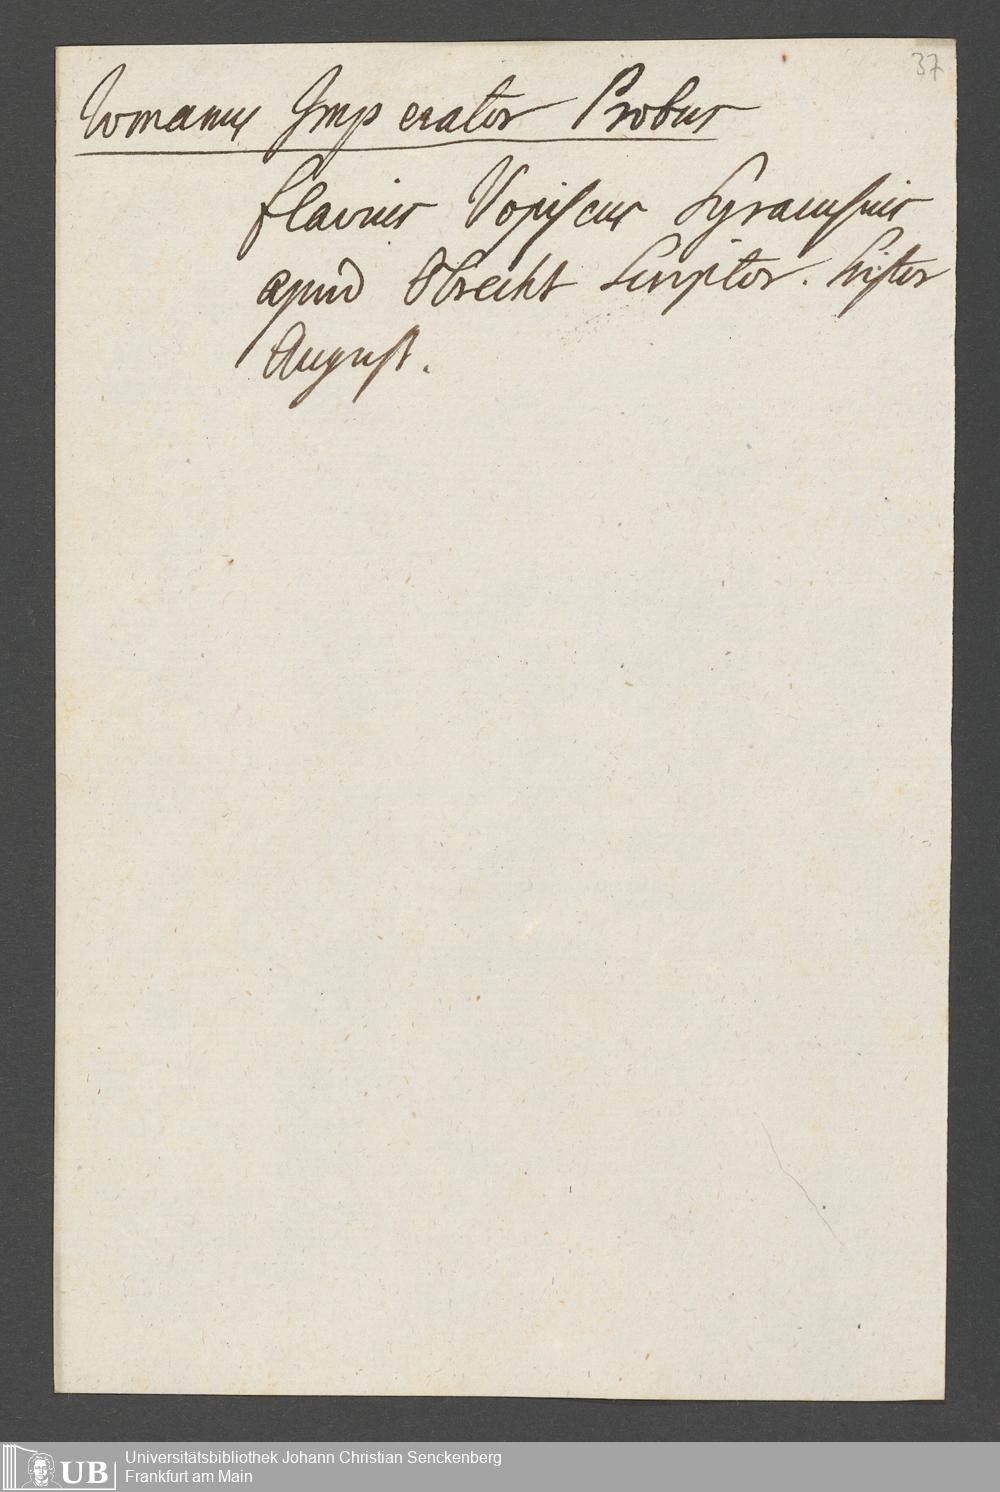 37
Romanus Imperator Probus
flavius Vopiscus Syracusius
apud Obrecht Scriptor. Histor
August.
UB Universitätsbibliothek Johann Christian Senckenberg
Frankfurt am Main